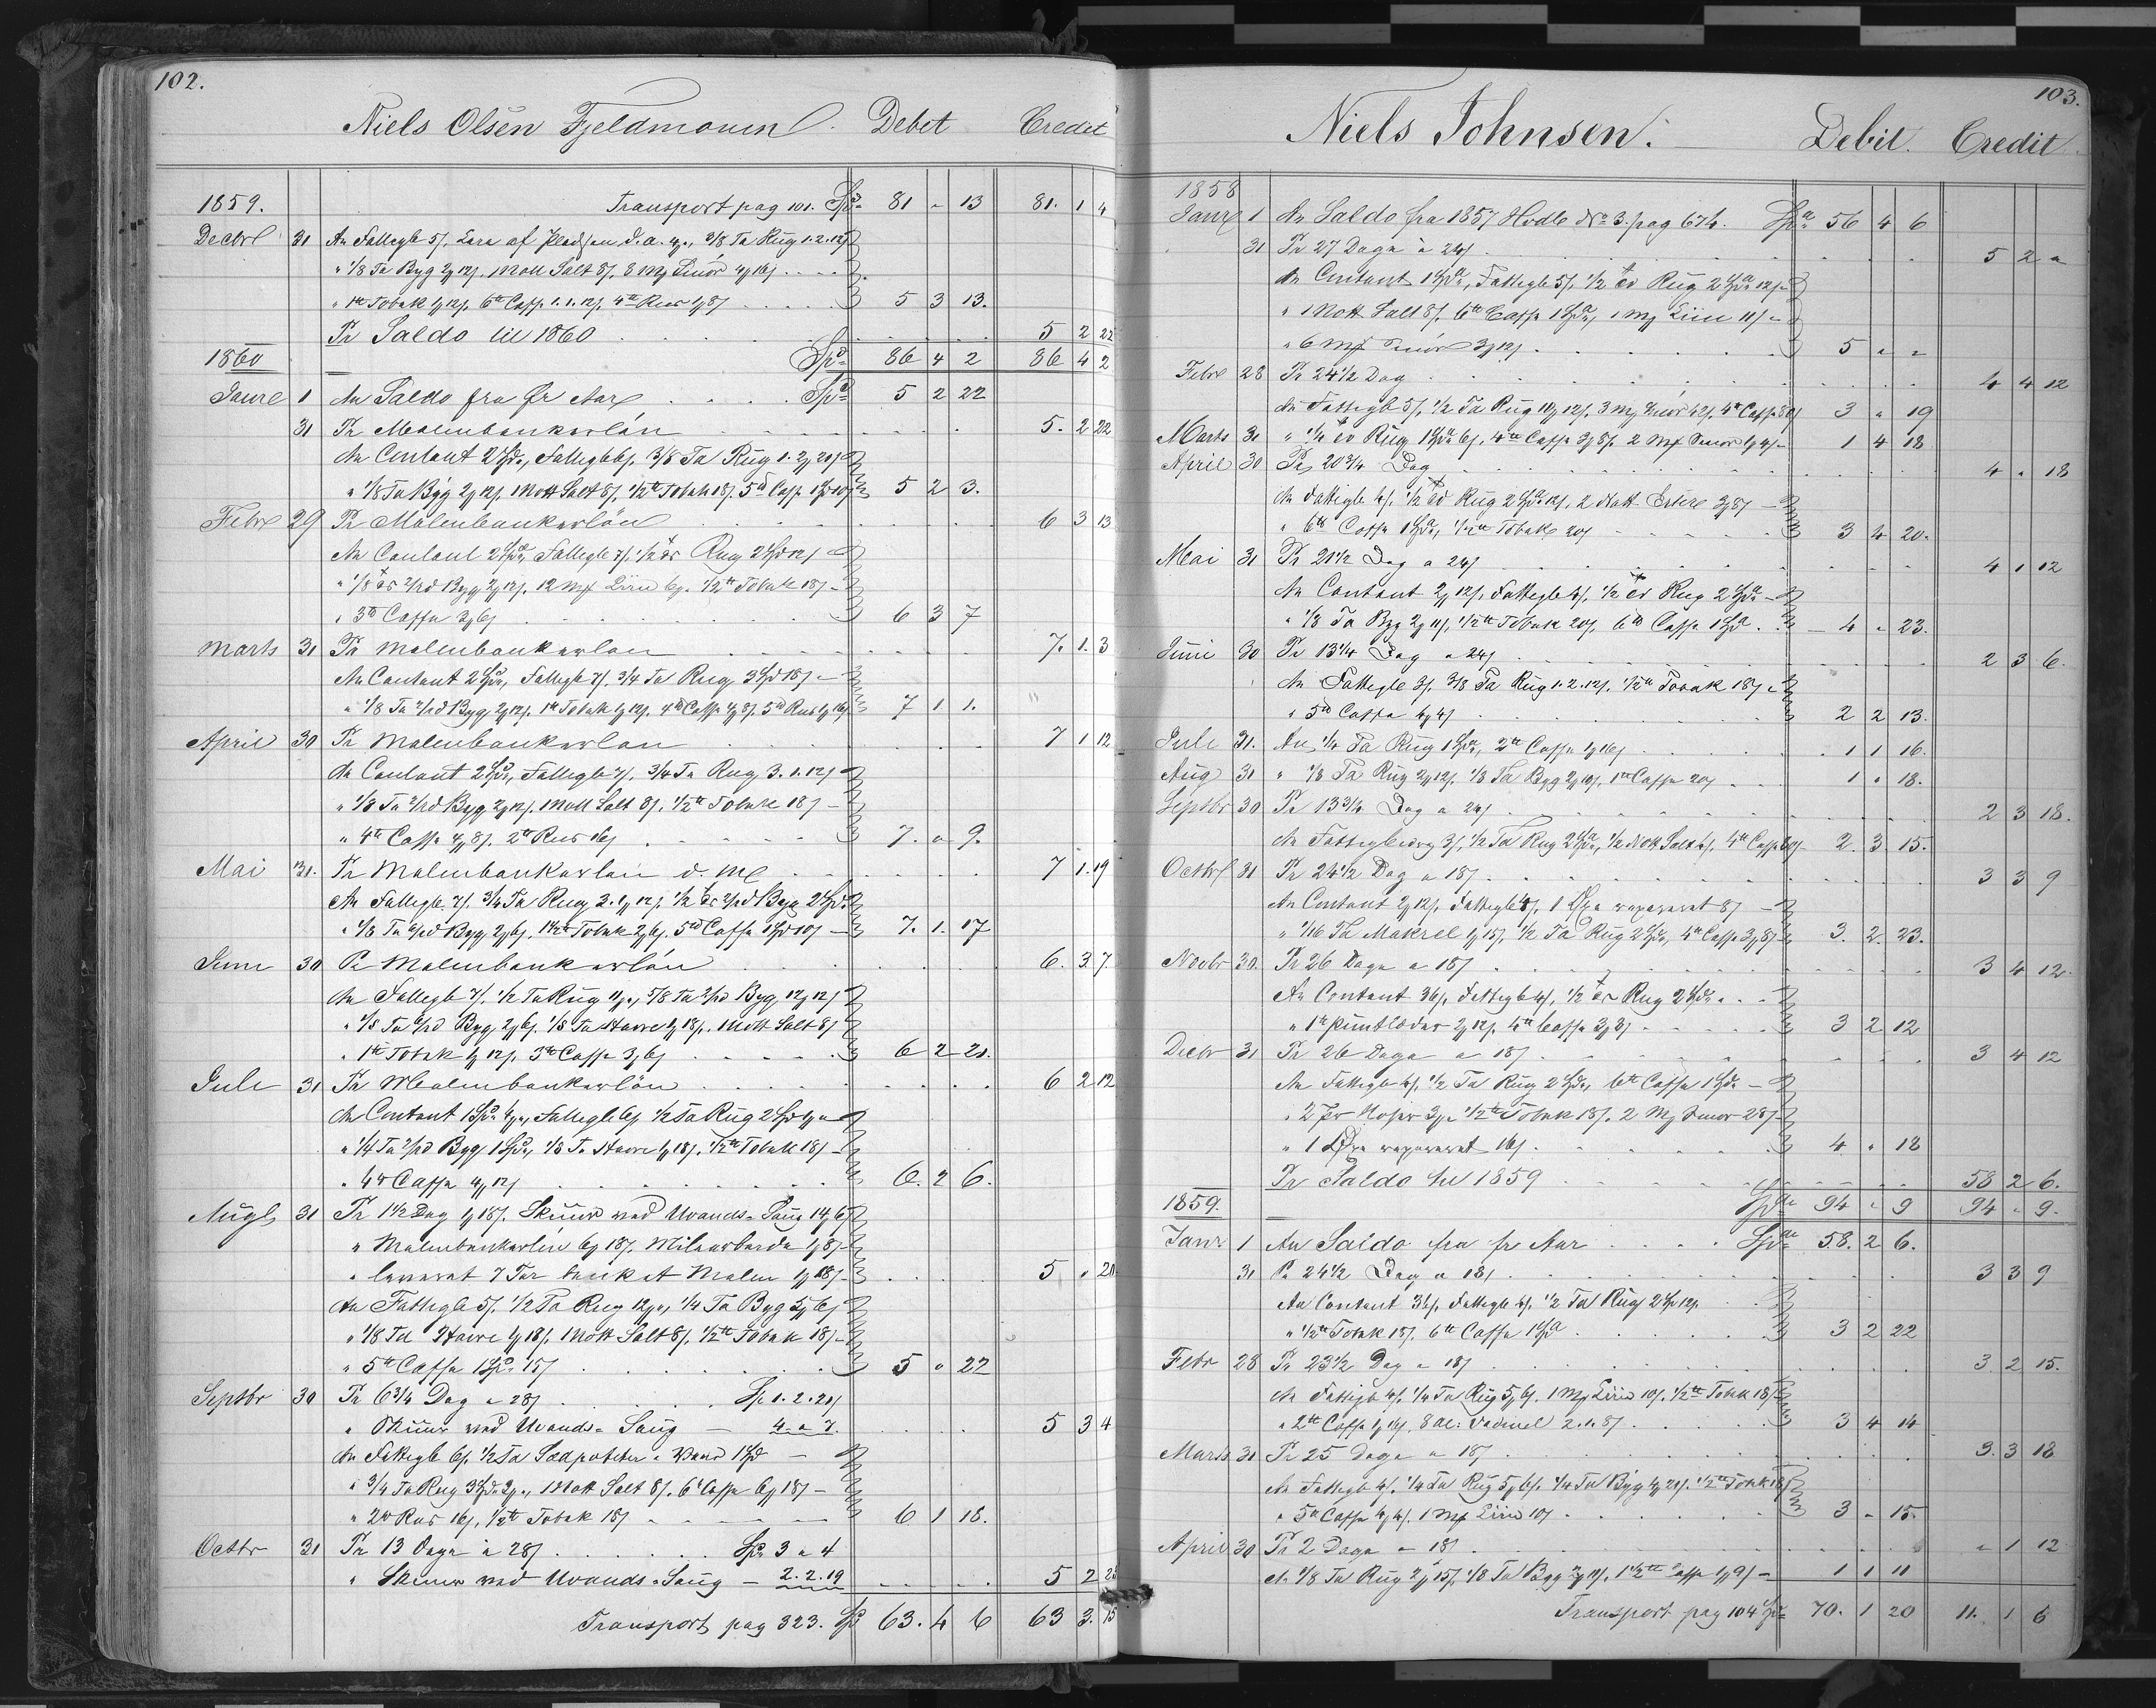 102.
Niels Olsen Fjeldmouen Debet Credit
1859. Transport pag 101. Spd 81 " 13 81. 1 4
Decbr 31 An Fattigb 5/, Lera af Pladsen d. a. 3/8 Ta Rug 1.2.12/
" 1/8 Ta Byg 2/12/, 1 Mott Salt 8/, 8 Mg Smör 4/16/
" 1 tb Tobak 1/12/, 6 tb Caffe 1.1.12/, 4 tb Rus 1/8/ 5 3 13.
Pr Saldo til 1860 5 2 22
1860 Spd 86 4 2 86 4 2
Janr 1 An Saldo fra fr Aar Spd 5 2 22
31 Pr Malmbankerlön 5. 2 22
An Contant 2 Spd, Fattigb 6/, 3/8 Ta Rug 1. 2/20/
" 1/8 Ta Byg 2/12/, 1 Mott Salt 8/, 1/2 tb Tobak 18/, 5 tb Caffe 1 Spd 10/ 5 2 3.
Febr 29 Pr Malmbankerlön 6 3 13
An Contant 2 Spd, Fattigb 7/, 1/2 Rug 2 Spd 12/
" 1/8 Byg 2/12/, 12 Mg 6/, 1/2 tb Tobak 18/
" 3 tb Caffe 3/6/ 6 3 7
Marts 31 Pr Malmbankerlon 7. 1. 3
An Contant 2 Spd, Fattigb 7/, 3/4 Ta Rug 3 Spd 18/
" 1/8 Ta Byg 2/12/, 1 tb Tobak 1/12/, 4 tb Caffe 4/8/, 5 tb Rus 1/16/ 7 1 1.
April 30 Pr Malmbankerlon 7 1 12
An Contant 2 Spd, Fattigb 7/, 3/4 Ta Rug 3. 1. 12/
" 1/8 Ta Byg 2/12/, 1 Mott Salt 8/, 1/2 tb Tobak 18/
" 4 tb Caffe 4/8/, 2 tb Rus 16/ 7. " 9.
Mai 31. Pr Malmbankerlön d. M 7 1. 19
An Fattigb 7/, 3/4 Ta Rug 3. 1/12/, 1/2 Byg 2 Spd
" 1/8 Ta Byg 2/6/, 1 1/2 tb Tobak 2/6/, 5 tb Caffe 1 Spd 10/ 7. 1. 17
Juni 30 Pr Malmbankerlön 6. 3. 7.
An Fattigb 7/, 1/2 Ta Rug 11/, 5/8 Ta Byg 12/12/
" 1/8 Ta Byg 2/6/, 1/8 Ta Havre 1/18/, 1 Mott Salt 8/
" 1 tb Tobak 1/12/, 3 tb Caffe 3/6/ 6 2 21.
Juli 31 Pr Malmbankerlön 6 2 12
An Contant 1 Spd 4/, Fattigb 6/, 1/2 Ta Rug 2 Spd 1/
" 1/4 Ta Byg 1 Spd, 1/8 Ta Havre 1/18/, 1/2 tb Tobak 18/
" 4 tb Caffe 4/12/ 6. 2 6.
Augt 31 Pr 1 1/2 Dag 1/18/, Skuur ved Uvands-Saug 14/6/
" Malmbankerlön 6/18/, Milearbeide 1/8/
" leveret 7 Tar banket Malm 1/18/ 5 " 20
An Fattigb 5/, 1/2 Ta Rug 12/, 1/4 Ta Byg 5/6/
" 1/8 Ta Havre 1/18/, 1 Mott Salt 8/, 1/2 tb Tobak 18/
" 5 tb Caffe 1 Spd 15/ 5 " 22
Septbr 30 Pr 6 3/4 Dag a 28/ Sp 1. 2. 21/
" Skuur ved Uvands-Saug 4 " 7. 5 3 4
An Fattigb 6/, 1/2 Ta Sædpoteter 1 Spd
" 3/4 Ta Rug 3 Spd 2/, 1 Mott Salt 8/, 6 tb Caffe 6/18/
" 2 tb Rus 16/, 1/2 tb Tobak 18/ 6 1 18.
Octbr 31 Pr 13 Dage a 28/ Spd 3 " 4
" Skuur ved Uvands-Saug 2. 2. 19 5 2 23
Transport pag 323. Spd 63. 4 6 63 3. 15
103.
Niels Johnsen. Debit. Credit.
1858
Janr 1 An Saldo fra 1857 Hvdb No 3. pag 674. Spd 56 4 6
31 Pr 27 Dage à 24/ 5 2 "
An Contant 1 Spd, Fattigb 5/, 1/2 Rug 2 Spd 12/
" 1 Mott Salt 8/, 6 tb Caffe 1 Spd, 1 Mg 11/
" 6 Mg Smör 3/12/ 5 " "
Febr 28 Pr 24 1/2 Dag 4 4 12
An Fattigb 5/, 1/2 Ta Rug 11/12/, 3 Mg Smör 42/, 4 tb Caffe 3 " 19
Marts 31 " 1/4 Rug 1 Spd 6/, 4 tb Caffe 3/8/, 2 Mg Smör 1/4/ 1 4 18
April 30 Pr 20 3/4 Dag 4 " 18
An Fattigb 4/, 1/2 Rug 2 Spd 12/, 2 Mott Erter 3/8/
" 6 tb Caffe 1 Spd, 1/2 tb Tobak 20/ 3 4 20.
Mai 31 Pr 21 1/2 Dag a 24/ 4 1 12
An Contant 2/12/, Fattigb 4/, 1/2 Rug 2 Spd
" 1/8 Ta Byg 2/11/, 1/2 tb Tobak 20/, 6 tb Caffe 1 Spd 4 " 23.
Juni 30 Pr 13 1/4 Dag a 24/ 2 3 6.
An Fattigb 3/, 3/8 Ta Rug 1. 2. 12/, 1/2 tb Tobak 18/
" 5 tb Caffe 4/4/ 2 2 13.
Juli 31. An 1/4 Ta Rug 1 Spd, 2 tb Caffe 1/16/ 1 1 16.
Aug 31 " 1/8 Ta Rug 2/12/, 1/8 Ta Byg 2/10/, 1 tb Caffe 20/ 1 " 18.
Septbr 30 Pr 13 3/4 Dag a 24/ 2 3 18.
An Fattigb 3/, 1/2 Ta Rug 2 Spd, 1/2 Mott Salt 4/, 4 tb Caffe 2. 3 15.
Octbr 31 Pr 24 1/2 Dag a 18/ 3 3 9
An Contant 2/12/, Fattigb 4/, 1 Øxe repareret 8/
" 1/16 Ta Makrel 1/15/, 1/2 Ta Rug 2 Spd, 4 tb Caffe 3/8/ 3. 2. 23.
Novbr 30. Pr 26 Dage a 18/ 3 4 12.
An Contant 36/, Fattigb 4/, 1/2 Rug 2 Spd
" 1 tb Puntlæder 2/12/, 4 tb Caffe 3/8/ 3 2 12
Decbr 31 Pr 26 Dage a 18/ 3 4 12
An Fattigb 4/, 1/2 Ta Rug 2 Spd, 6 tb Caffe 1 Spd
" 2 Par Hoser 3/, 1/2 tb Tobak 18/, 2 Mg Smor 28/
" 1 Øxe repareret 16/ 4 " 18
Pr Saldo til 1859 58 2 6.
1859. Spd 94 " 9 94 " 9.
Janr 1 An Saldo fra fr Aar Spd 58. 2 6.
31 Pr 24 1/2 Dag a 18/ 3 3 9
An Contant 36/, Fattigb 4/, 1/2 Ta Rug 2 Spd 12/
" 1/2 tb Tobak 18/, 6 tb Caffe 1 Spd 3 2 22
Febr 28 Pr 23 1/2 Dag a 18/ 3. 2 15.
An Fattigb 4/, 1/4 Ta Rug 5/6/, 1 Mg 10/, 1/2 tb Tobak 18/
" 2 tb Caffe 1/16/, 8 Al: Vadmel 2. 1. 8/ 3 4 14
Marts 31 Pr 25 Dage a 18/ 3. 3 18
An Fattigb 4/, 1/4 Ta Rug 5/6/, 1/4 Ta Byg 4/21/, 1/2 tb Tobak 18/
" 5 tb Caffe 4/4/, 1 Mg 10/ 3 " 15.
April 30 Pr 2 Dage a 18/ " 1 12
An 1/8 Ta Rug 2/15/, 1/8 Ta Byg 2/11/, 1 1/2 tb Caffe 1/9/ 1 1 11
Transport pag 104 Spd 70. 1 20 11. 1 6